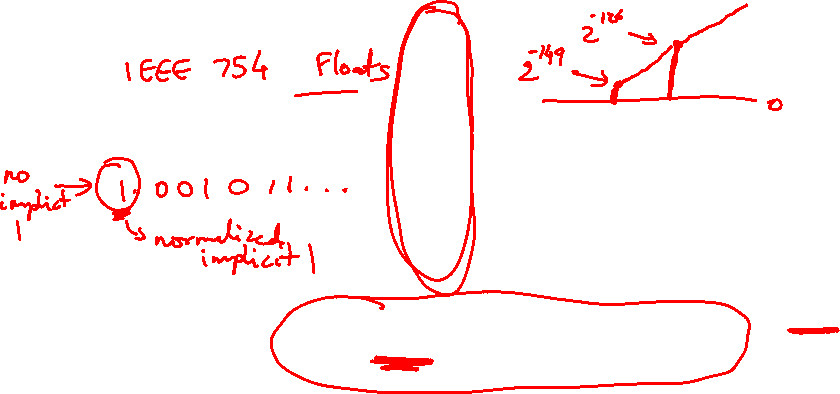 IEEE 754 Floats
2^-126
2^-149
0
no
implict
1
1. 0 0 1 0 1 1 ...
normalized
implicit 1